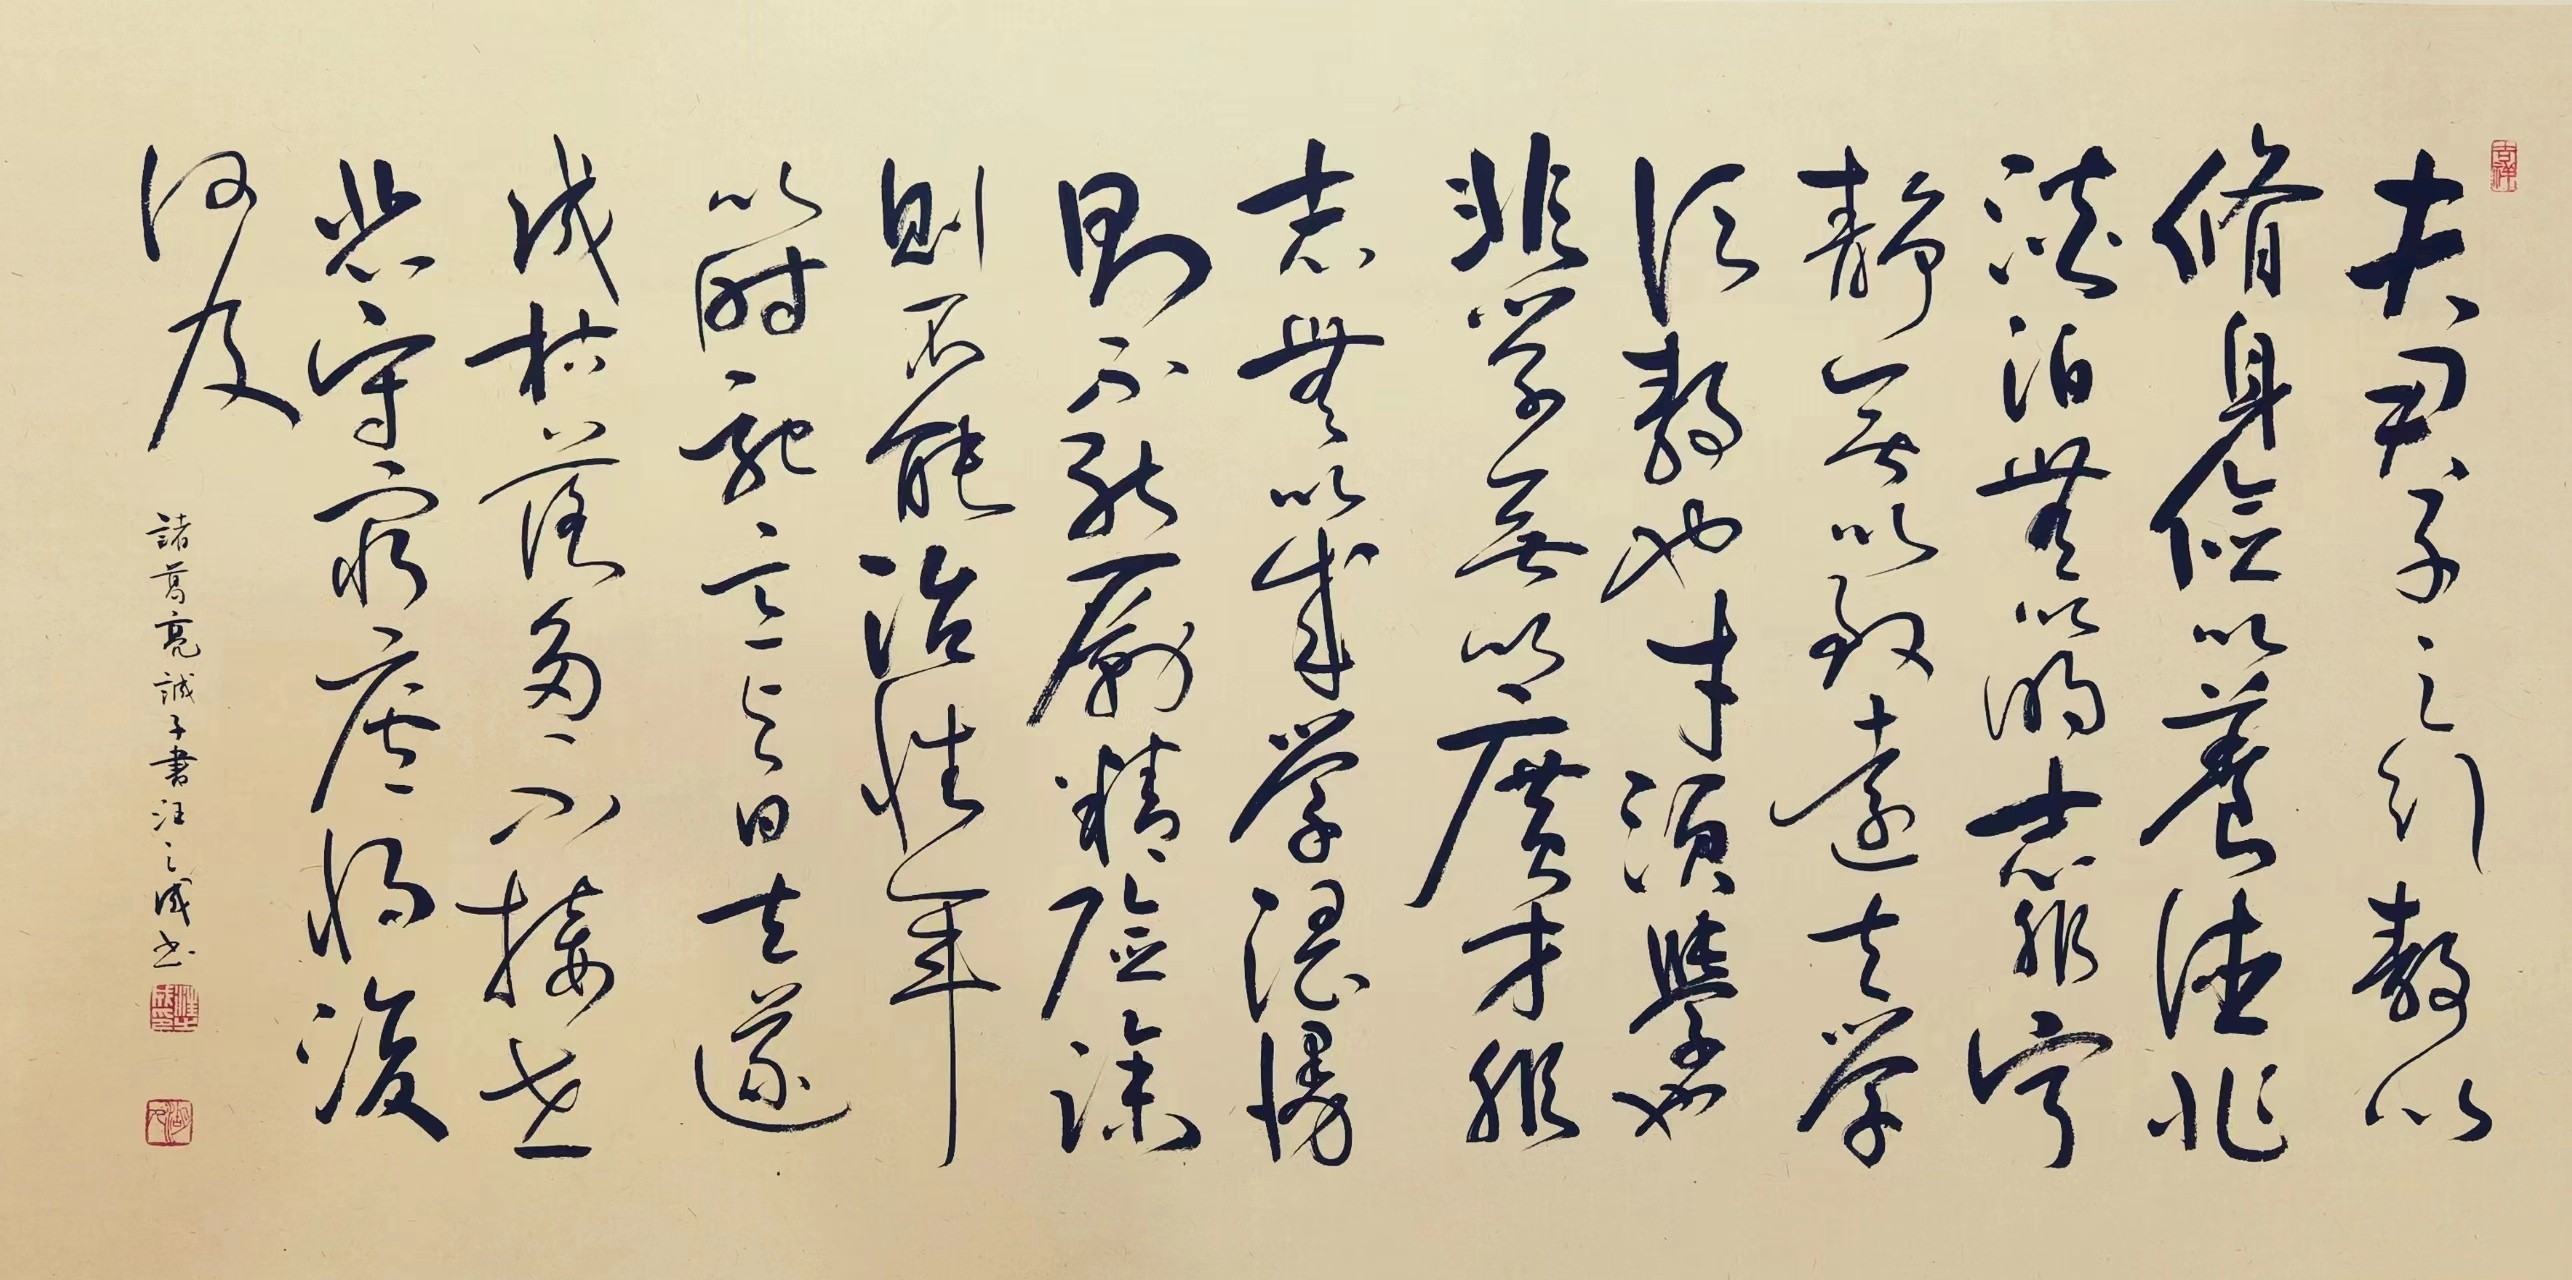 夫君子之行靜以
脩身儉以養德非
澹泊無以明志非寧
靜無以致遠夫學
須靜也才須學也
非學無以廣才非
志無以成學淫慢
則不能勵精險躁
則不能治性年
以時馳意与日去遂
成枯落多不接世
悲守窮廬將復
何及
諸葛亮誡子書汪之成书